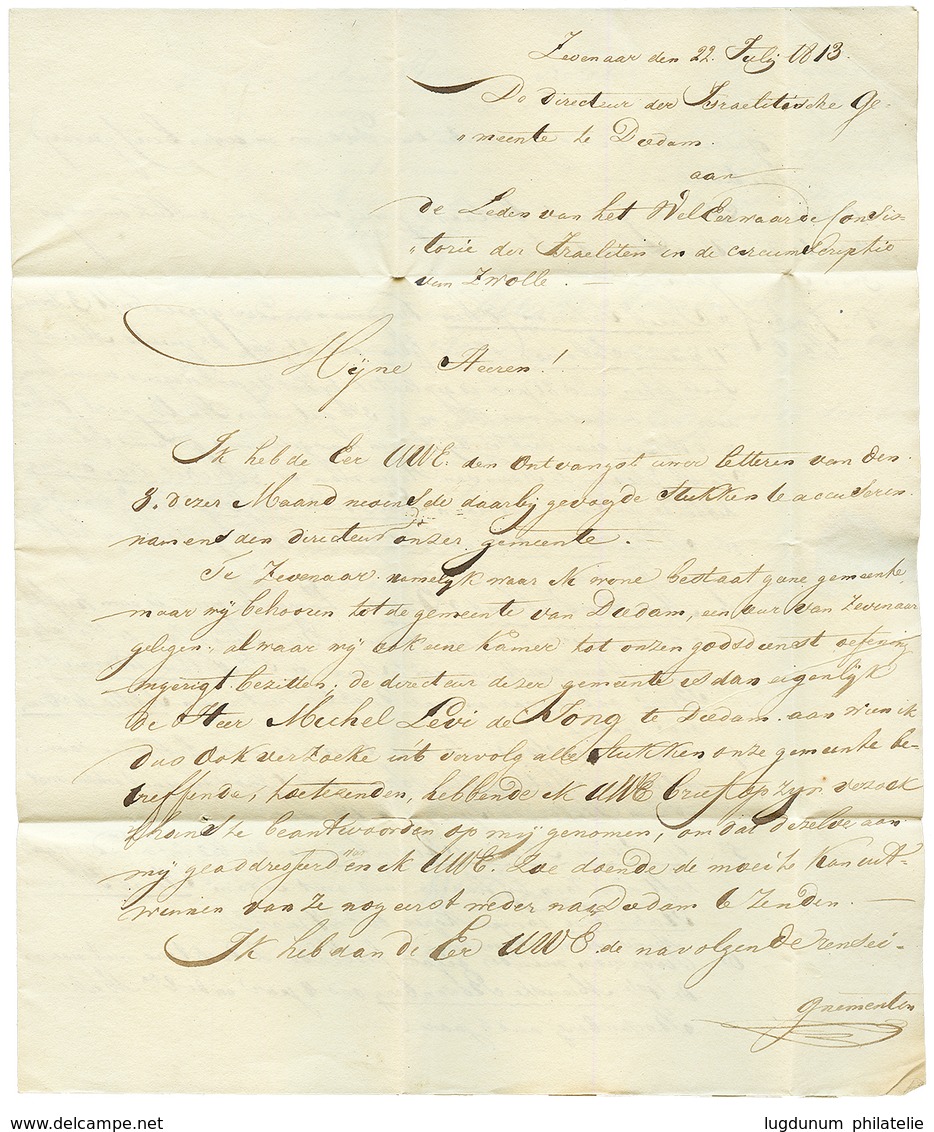 Zevenaar den 22. Julij 1813.
De directeur der Israelitische Ge-
meente te Diedam.
aan
de Leden van het WelEerwaarde Consis-
torie der Israeliten in de circumscriptie
van Zwolle. —
Mijne Heeren!
Ik heb de Eer UWE. den ontvangst uwer letteren van den
8. dezer Maand nevens de daarbij gevoegde stukken te accuseren
namens den directeur onzer gemeente. —
Te Zevenaar namelyk waar ik wone bestaat gene gemeente
maar wij behooren tot de gemeente van Diedam, een uur van Zevenaar
gelegen, alwaar wij ook eene kamer tot onzen godsdienst oefening
ingerigt bezitten; de directeur dezer gemeente is dan eigenlijk
de Heer Michel Levi de Jong te Diedam. aan wien ik
dus ook verzoeke int vervolg alle stukken onze gemeente be-
treffende, toetezenden, hebbende ik UWE brief op zyn verzoek
thans te beantwoorden op mij genomen, om dat dezelve aan
mij geaddresseerd was en ik UWE. zoe doende de moeite kan uit-
winnen van ze nog eerst weder na Diedam te zenden. —
Ik heb dan de Eer UWE de navolgende rensei-
gnementen
lugdunum philatelie